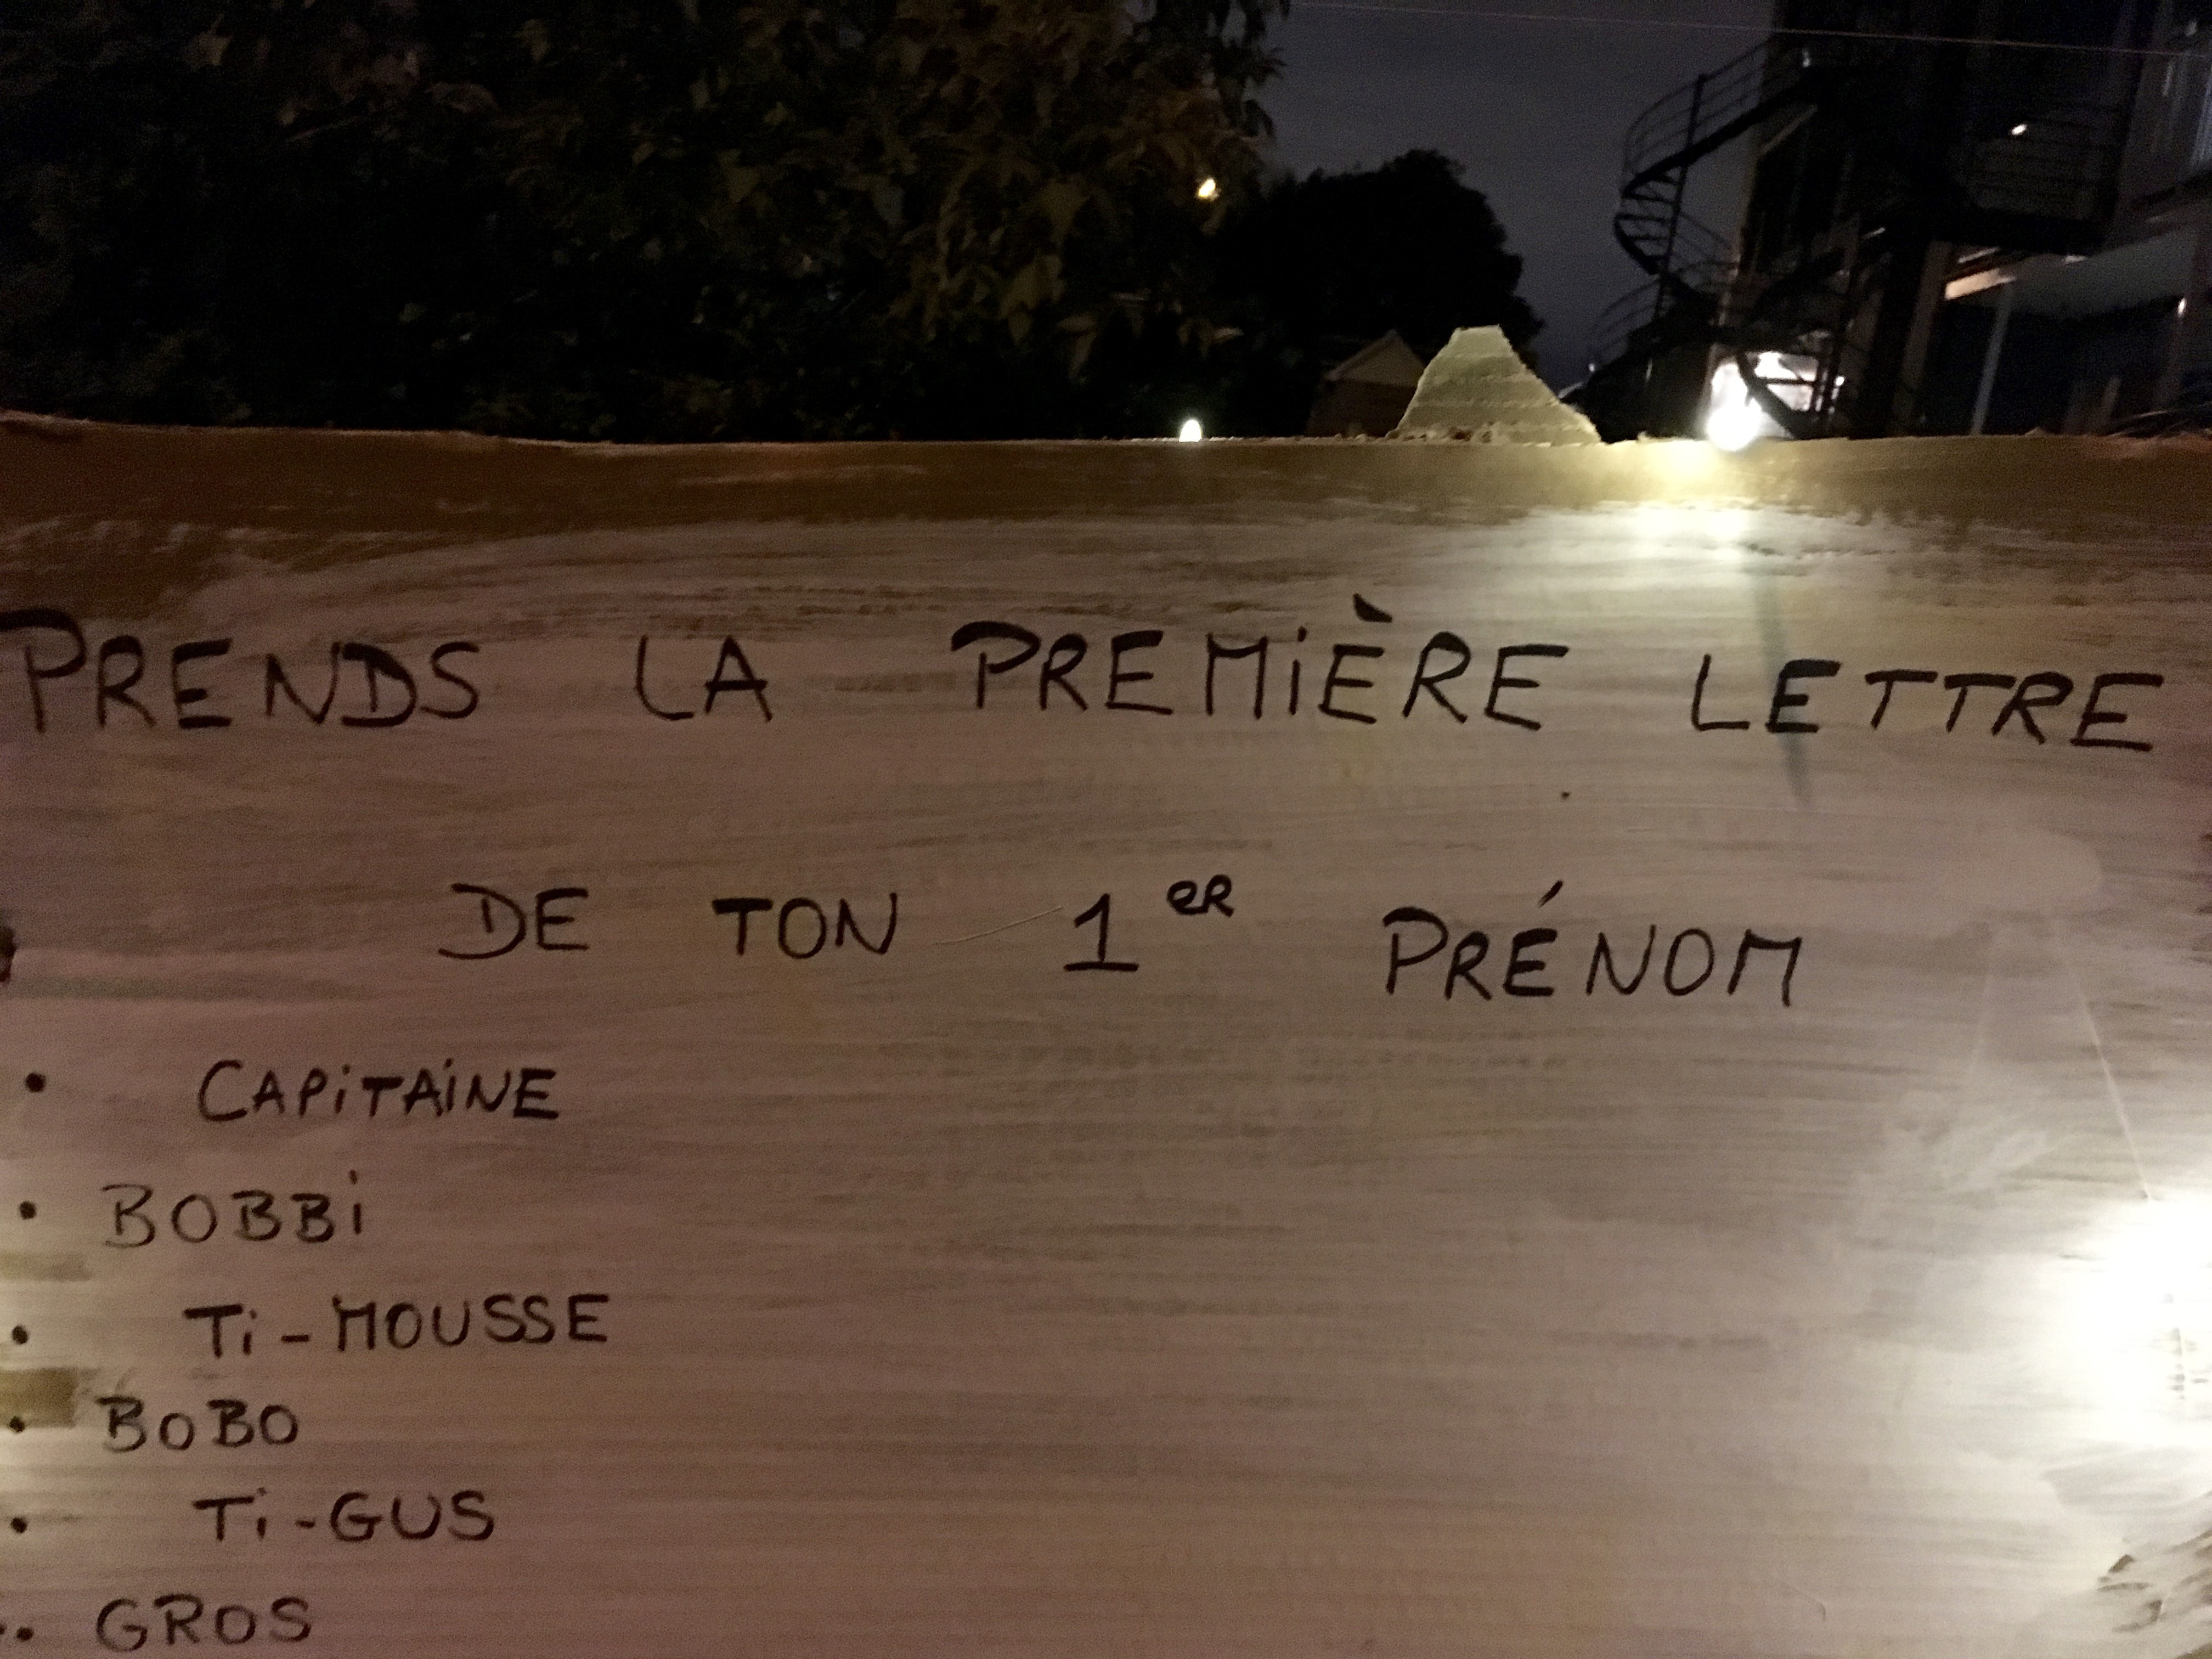 PRENDS LA PREMIÈRE LETTRE
DE TON 1er PRÉNOM
• CAPiTAiNE
• BOBBi
• Ti-MOUSSE
• BOBO
• Ti-GUS
•• GROS